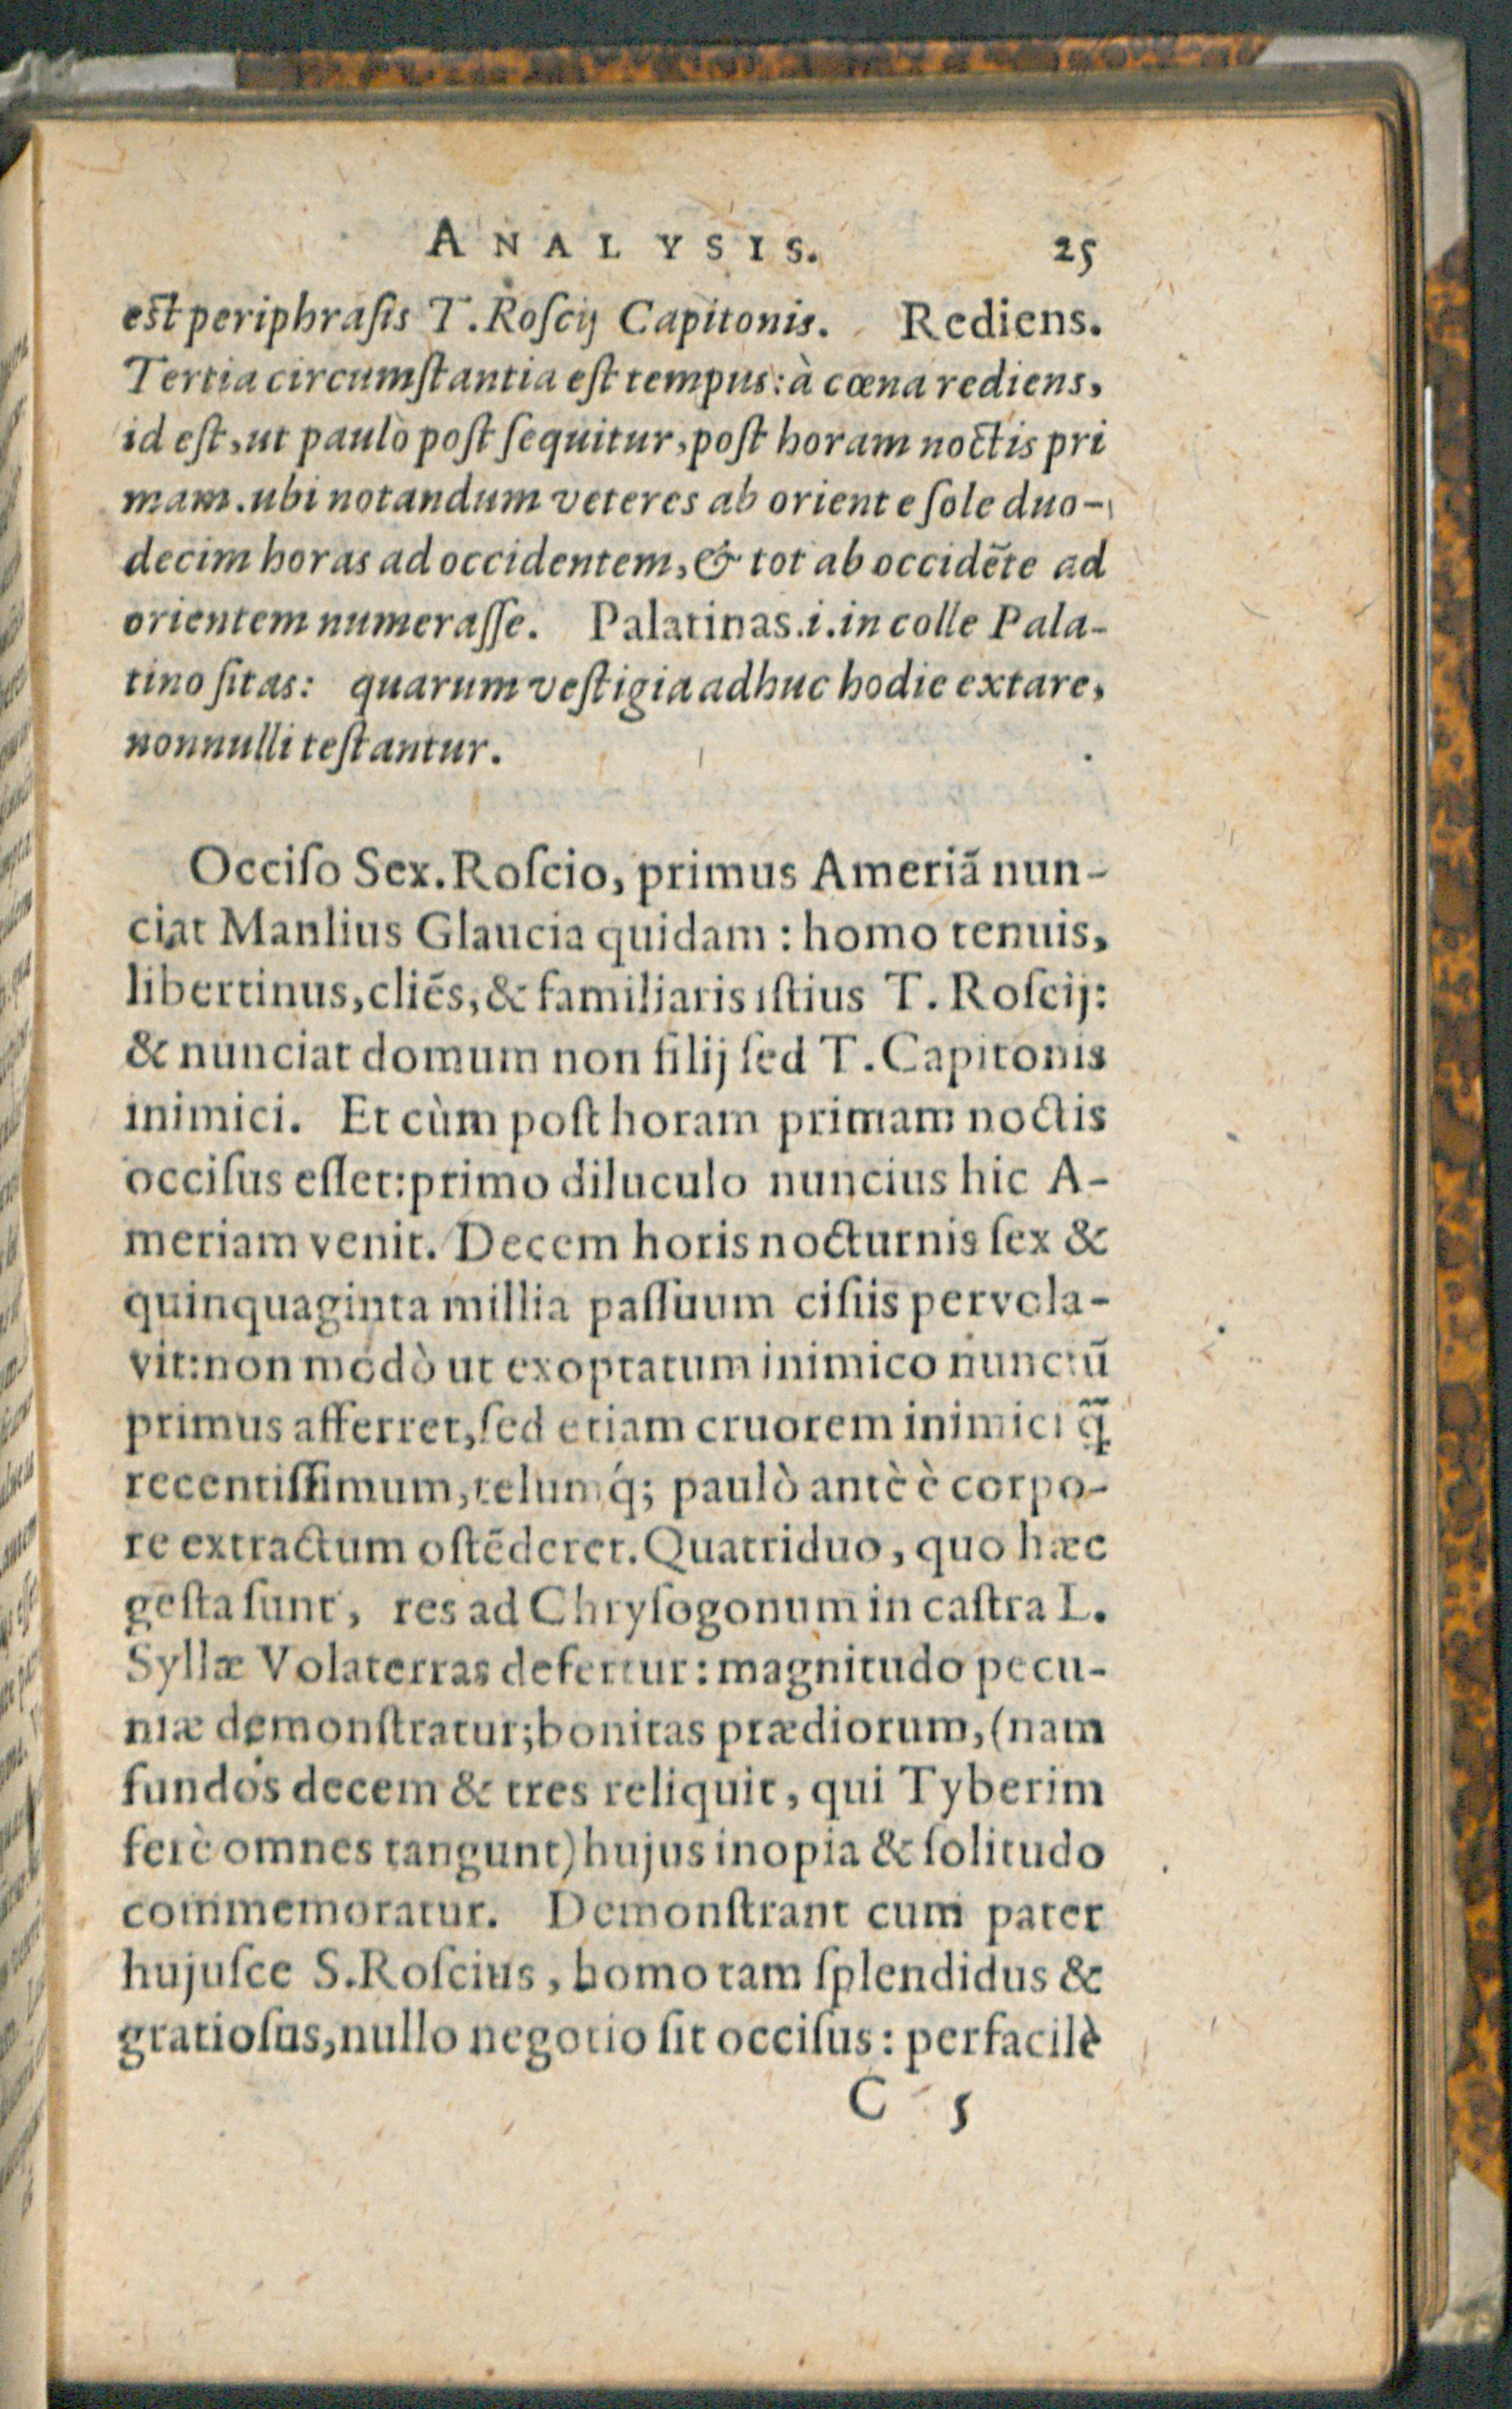 ANALYSIS. 25
est periphrasis T. Roscij Capitonis. Rediens.
Tertia circumſtantia eſt tempus: à cœna rediens,
id eſt, ut paulò poſt ſequitur, poſt horam noctis pri
mam. ubi notandum veteres ab oriente ſole duo-
decim horas ad occidentem, & tot ab occidẽte ad
orientem numeraſſe. Palatinas .i. in colle Pala-
tino ſitas: quarum veſtigia adhuc hodie extare,
nonnulli teſtantur.
Occiſo Sex. Roſcio, primus Ameriã nun-
ciat Manlius Glaucia quidam: homo tenuis,
libertinus, cliẽs, & familiaris iſtius T. Roſcij:
& nunciat domum non filij ſed T. Capitonis
inimici. Et cùm poſt horam primam noctis
occiſus eſſet: primo diluculo nuncius hic A-
meriam venit. Decem horis nocturnis ſex &
quinquaginta millia paſſuum ciſiis pervola-
vit: non modò ut exoptatum inimico nunciũ
primus afferret, ſed etiam cruorem inimici q̃
recentiſſimum, telumq́; paulò antè è corpo-
re extractum oſtẽderet. Quatriduo, quo hæc
geſta ſunt, res ad Chryſogonum in caſtra L.
Syllæ Volaterras defertur: magnitudo pecu-
niæ demonſtratur; bonitas prædiorum, (nam
fundos decem & tres reliquit, qui Tyberim
ferè omnes tangunt) hujus inopia & ſolitudo
commemoratur. Demonſtrant cum pater
hujuſce S. Roſcius, homo tam ſplendidus &
gratioſus, nullo negotio ſit occiſus: perfacilè
C 5